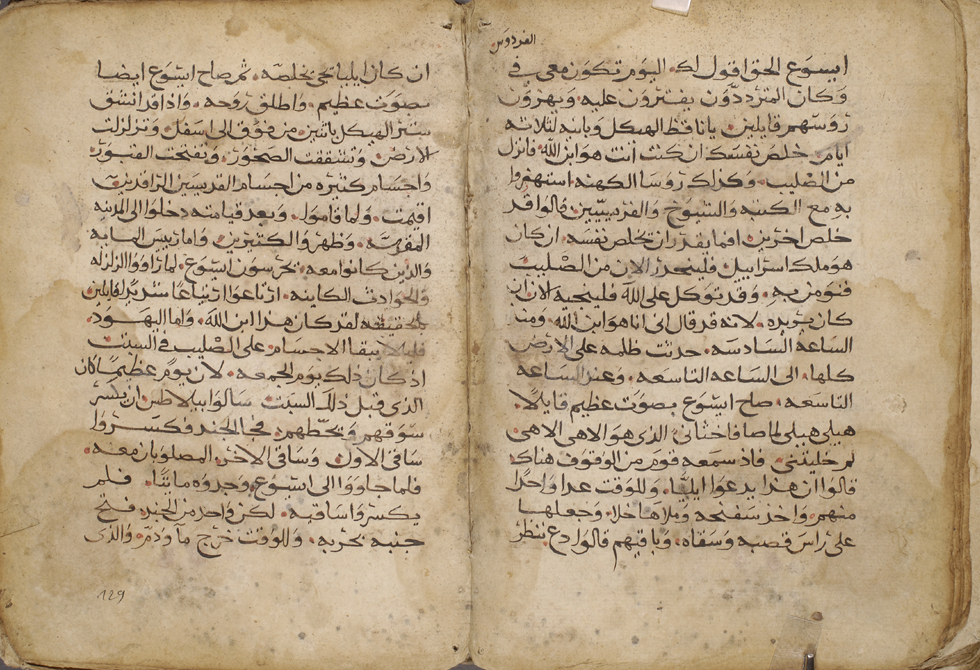 الفردوس
ايسوع الحق اقول لك. اليوم تكون معي في
وكان المترددون يفترون عليه ويهزون
روسهم قايلين. يا ناقظ الهيكل وبانيه لثلاثه
ايام. خلص نفسك ان كنت انت هو ابن الله فانزل
من الصليب. وكذلك روسا الكهنه استهزوا
به مع الكتبه والشيوخ والفريسيين قالوا قد
خلص اخرين. افما يقدر ان يخلص نفسه. ان كان
هو ملك اسراييل. فلينحدر الان من الصليب
فنومن به. وقد توكل على الله فلينجيه الان ان
كان يريده. لانه قد قال اني انا هو ابن الله. ومند
الساعه السادسه. حدثت ظلمه على الارض
كلها. الى الساعه التاسعه. وعند الساعه
التاسعه. صاح ايسوع بصوت عظيم قايلا.
هيلي هيلي لما صافاختاني الذي هو الاهي الاهي
لم خليتني. فاذ سمعه قوم من الوقوف هناك
قالوا ان هذا يدعوا ايليا. وللوقت عدا واحدا
منهم. واخذ سفنجه وملاها خلا. وجعلها
على راس قصبه وسقاه. وباقيهم قالوا دع ننظر
ان كان ايليا تجي يخلصه. ثم صاح ايسوع ايضا
بصوت عظيم. واطلق روحه. واذا قد انشق
ستر الهيكل باثنين. من فوق الى اسفل وتزلزلت
الارض. وتشققت الصخور. وتفتحت القبور.
واجسام كثيره من اجسام القديسين الراقدين
اقيمت. ولما قاموا. وبعد قيامته دخلوا الى المدينه
المقدسه. وظهروا الكثيرين. واما رييس المايه
والذين كانوا معه. يحرسون ايسوع. لما راووا الزلزله
والحوادث الكاينه. ارتاعوا ارتياعا شديدا قايلين
حقيقه لقد كان هذا ابن الله. واما اليهود.
فليلا يبقا الاجسام على الصليب في السبت
اذ كان ذلك يوم الجمعه. لان يوم عظيما كان
الذي قبل ذلك السبت سالوا بيلاطس ان يكسر
سوقهم ويحطهم. فجا الجند فكسروا
ساقي الاول وساقي الاخر. المصلوبان معه.
فلما جاووا الى ايسوع وجدوه مايتا. فلم
يكسروا ساقيه. لكن واحد من الجند. فتح
جنبه بحربه. وللوقت خرج ما ودم. والذي
129